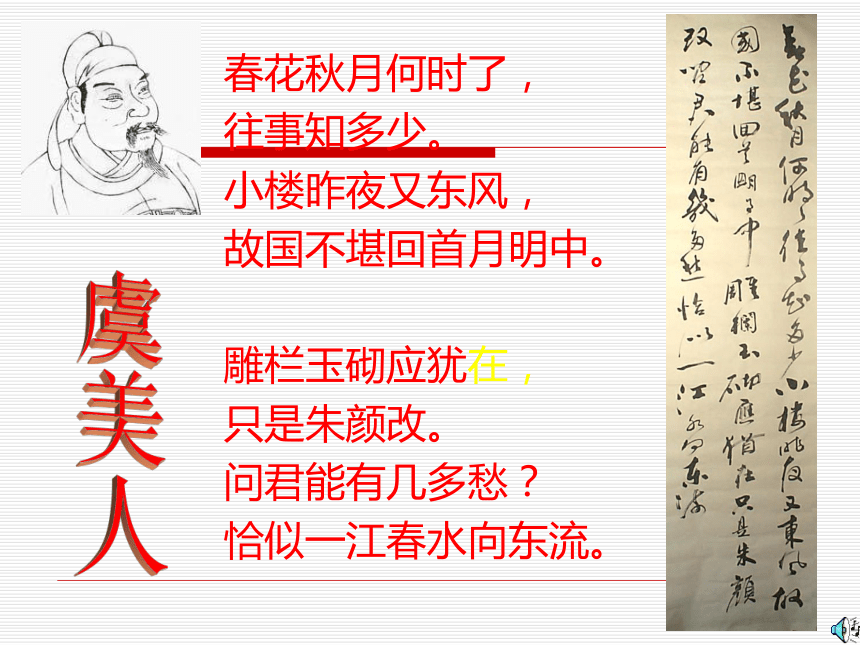 春花秋月何时了，
往事知多少。
小楼昨夜又东风，
故国不堪回首月明中。
雕栏玉砌应犹在，
只是朱颜改。
问君能有几多愁？
恰似一江春水向东流。
虞美人
春花秋月何時了往事知多少小樓昨夜又東風故
國不堪回首月明中雕欄玉砌應猶在只是朱顏
改問君能有幾多愁恰似一江春水向東流